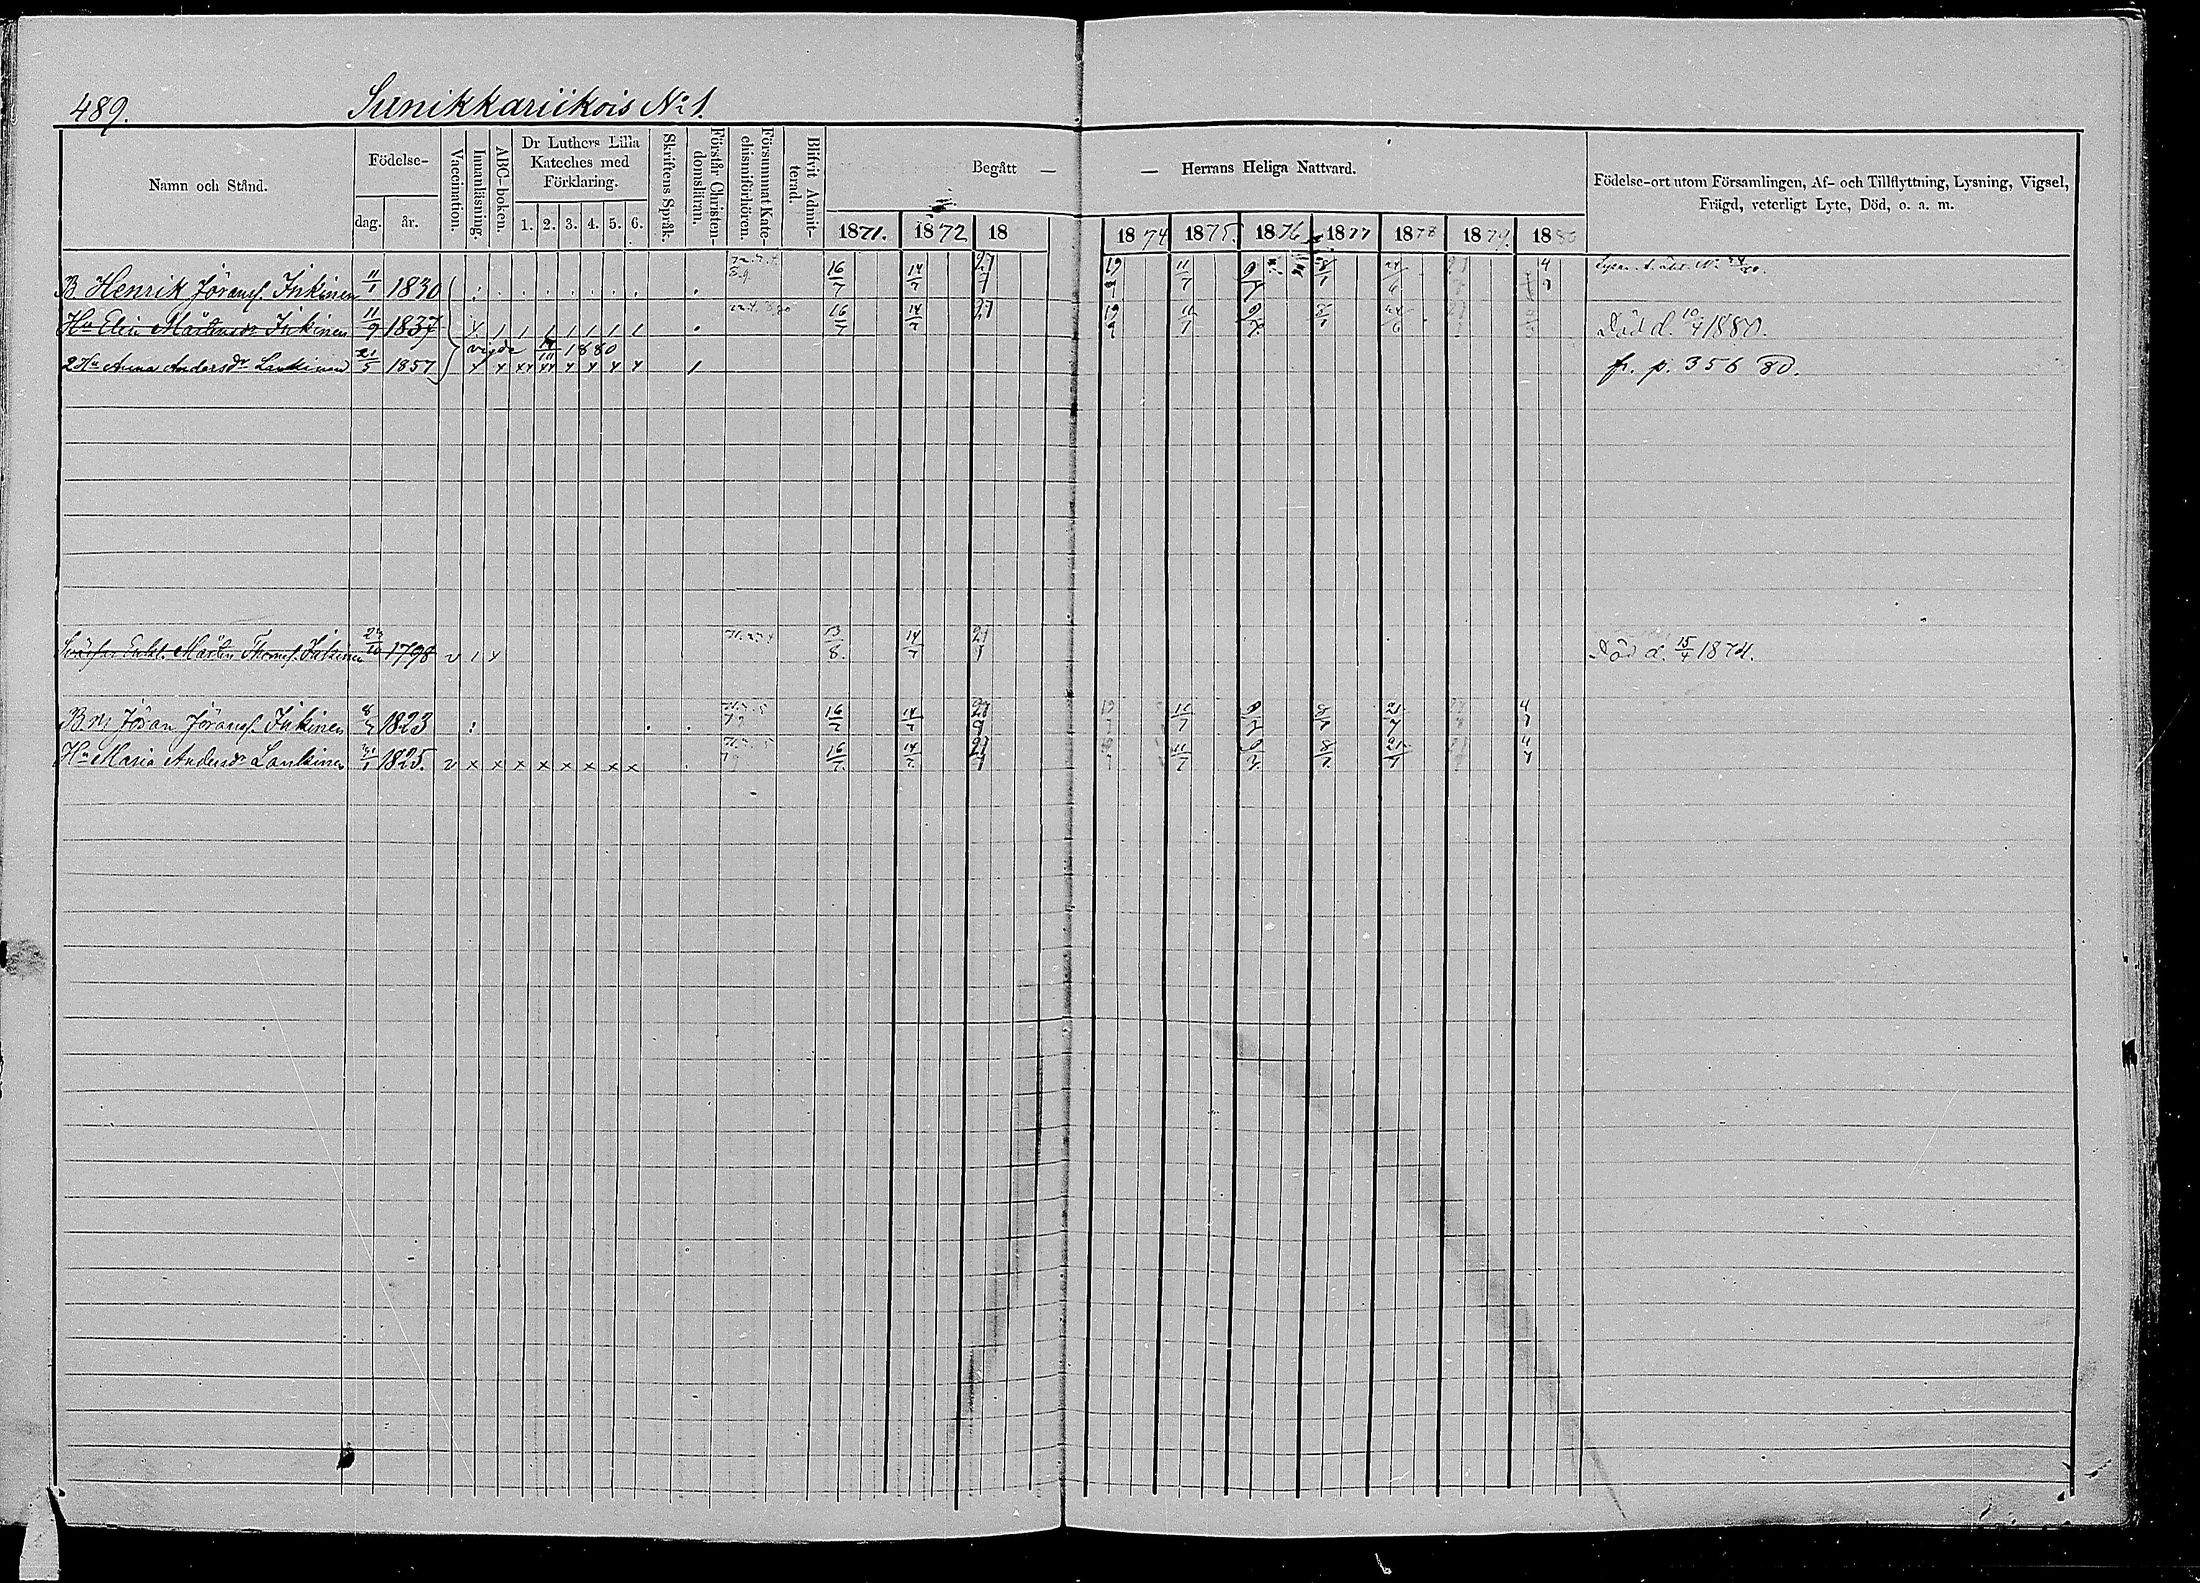 489. Sunikkariikois No 1.
Namn och Stånd. Födelse- dag. år. Vaccination. Innanläsning. ABC-boken. Dr Luthers Lilla Kateches med Förklaring. 1. 2. 3. 4. 5. 6. Skriftens Språk. Förstår Christendomsläran. Försummat Katechismiförhören. Blifvit Admitterad. Begått — — Herrans Heliga Nattvard. Födelse-ort utom Församlingen, Af- och Tillflyttning, Lysning, Vigsel,
Frägd, veterligt Lyte, Död, o. a. m.
1871. 1872 18 1874 1875. 1876 1877 1878 1879. 1880
B. Henrik Jöransf. Inkinen 11/1 1830 16/7 14/7 27/7 19/7 11/7 9/7 8/7 24/6 4/7
Hu Elin Mårtensdr Inkinen 11/9 1837 x 1 1 1 1 1 1 1 16/7 14/7 27 19/7 11/7 9/7 8/7 24/6 Död d. 10/4 1880.
vigde 1880
2 Hu Anna Andersdr Lankinen 21/5 1857 x x xx xx x x x x 1 fr. p. 356 80.
Enkl. Mårten Thomsf. Inkinen 23/10 1798 v 1 x 13/8. 14/7 27/7 Död d. 15/4 1874.
Br Jöran Jöransf. Inkinen 8/7 1823 16/7 14/7 27/7 19/7 11/7 9/7 8/7 21/7 4/7
Hu Maria Andersdr Lankinen 1825. v x x x x x x x x 16/7 14/7 27/7 11/7 9/7 8/7 21/7 4/7